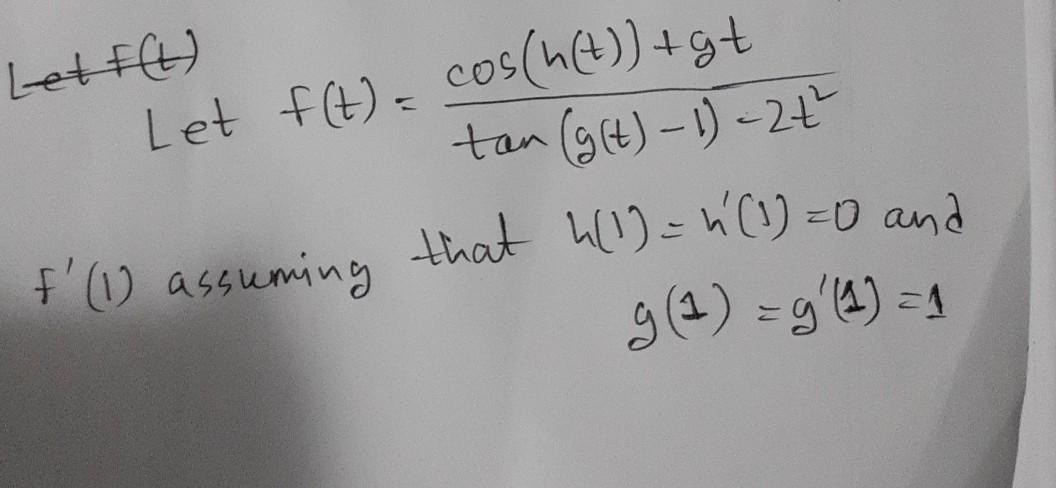 Let f(t)
Let f(t) = cos(h(t)) + gt / tan(g(t) - 1) - 2t²
f'(1) assuming that h(1) = h'(1) = 0 and
g(1) = g'(1) = 1